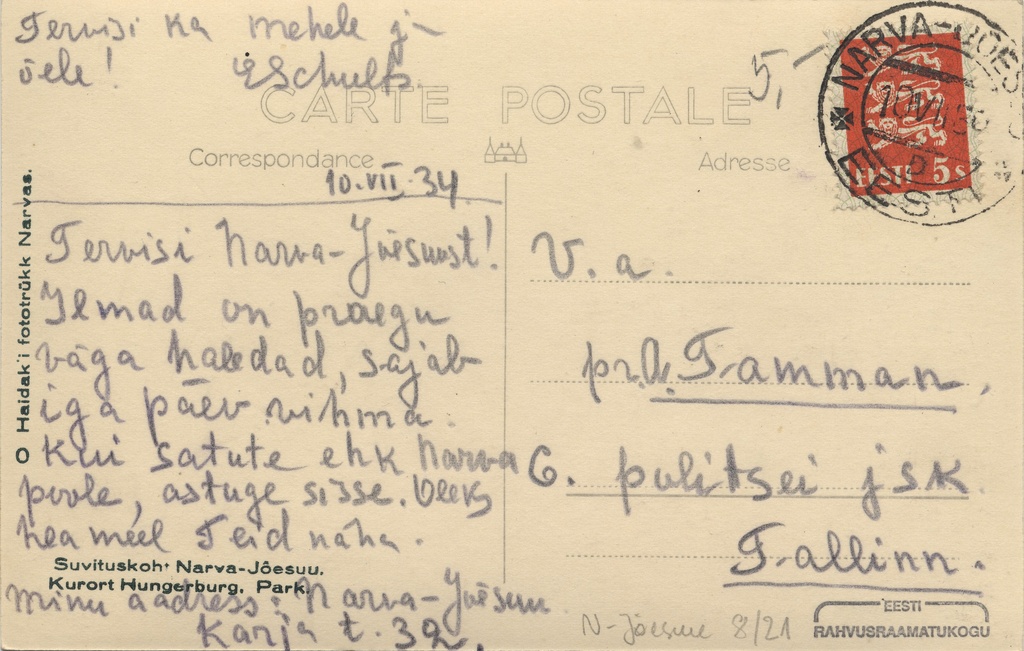 Tervisi ka mehele j-
õele! ESchults.
5,-
CARTE POSTALE
Correspondance
Adresse
NARVA-JÕESUU
EESTI
EESTI 5s
10.VII.34
Tervisi Narva-Jõesuust!
Ilmad on praegu
väga haledad, sajab
iga päev vihma.
Kui satute ehk Narva
poole, astuge sisse. Oleks
hea meel Teid näha.
Minu aadress: Narva-Jõesuu
Karja t. 32.
V. a.
pr. A. Tamman,
6. politsei jsk
Tallinn.
O Haidak'i fototrükk Narvas.
Suvituskoht Narva-Jõesuu.
Kurort Hungerburg, Park.
N-Jõesuu 8/21
EESTI
RAHVUSRAAMATUKOGU